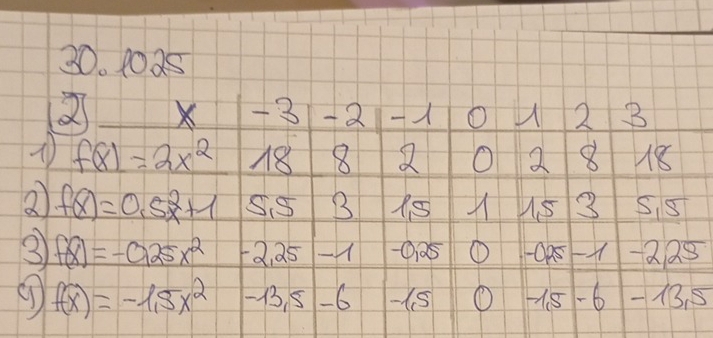 30.1025
2) x -3 -2 -1 0 1 2 3
1) f(x) = 2x² 18 8 2 0 2 8 18
2) f(x) = 0,5x²+1 5,5 3 1,5 1 1,5 3 5,5
3) f(x) = -0,25x² -2,25 -1 -0,25 0 -0,25 -1 -2,25
4) f(x) = -1,5x² -13,5 -6 -1,5 0 -1,5 -6 -13,5